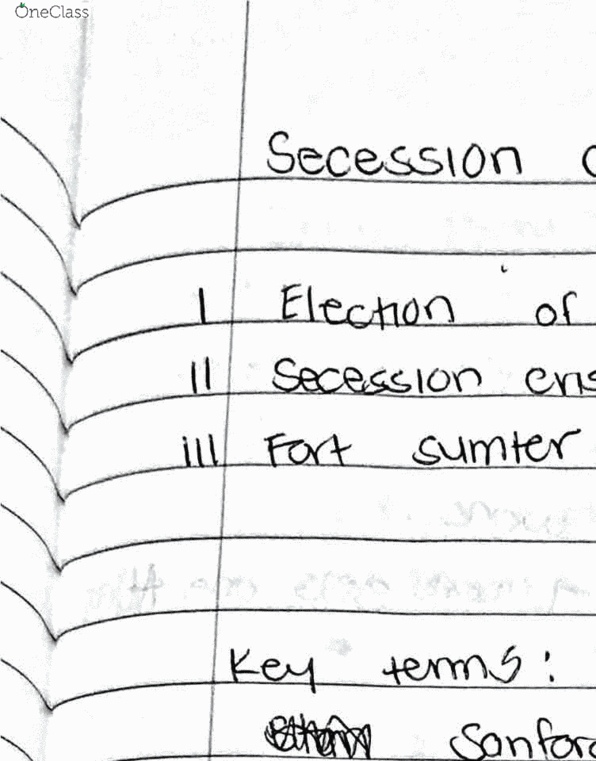 OneClass
Secession
I Election of
II Secession cris
III Fort sumter
Key terms:
Sanfor